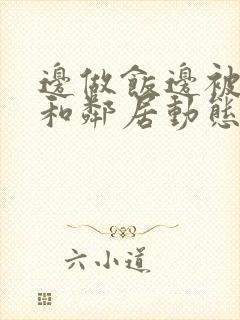 邊做飯邊被
和鄰居動態
六小道